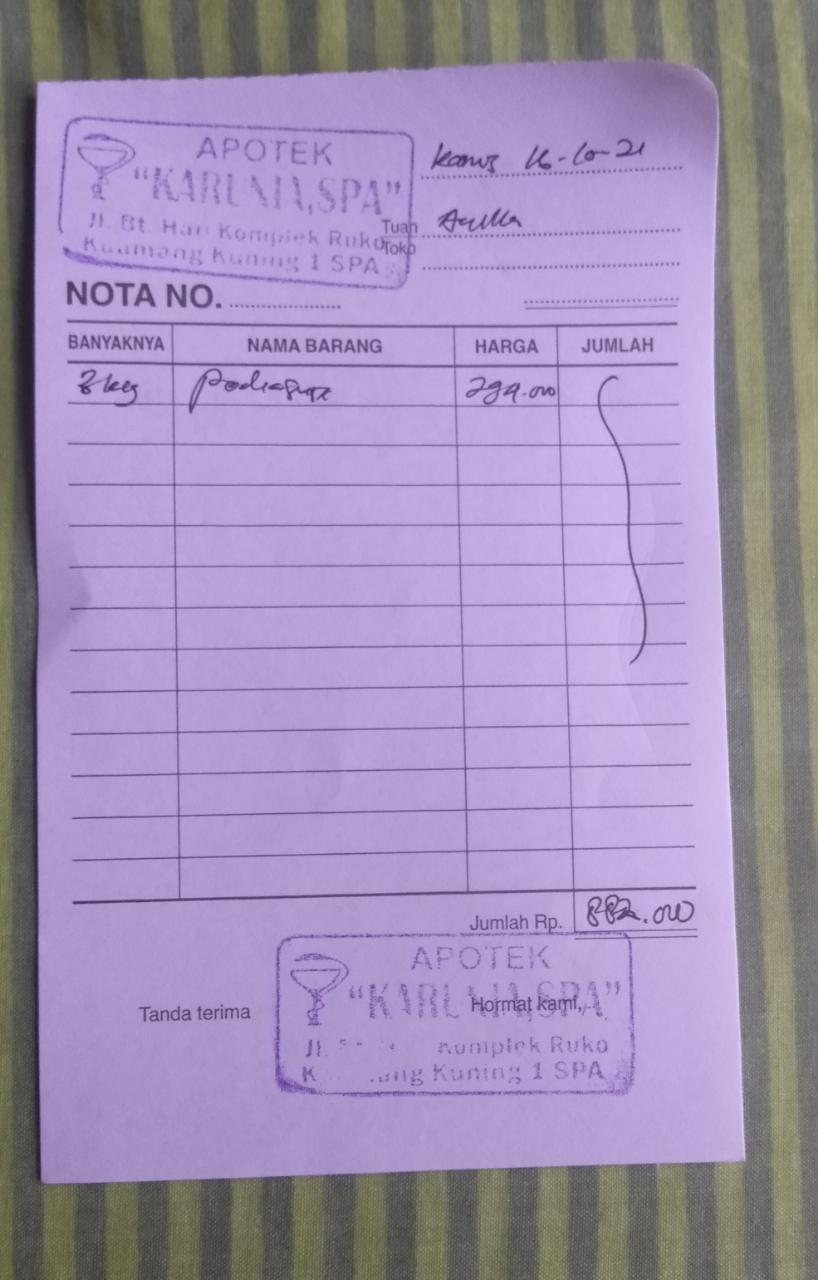 APOTEK
"KARUNIA,SPA"
Jl. Bt. Hari Komplek Ruko
Kuamang Kuning 1 SPA
Kamis 16-10-21
Tuan
Toko
NOTA NO.
BANYAKNYA NAMA BARANG HARGA JUMLAH
3 kg Pediasure 294.000
Jumlah Rp. 882.000
Tanda terima
Hormat kami,
APOTEK
"KARUNIA,SPA"
Jl. Komplek Ruko
Kuning 1 SPA